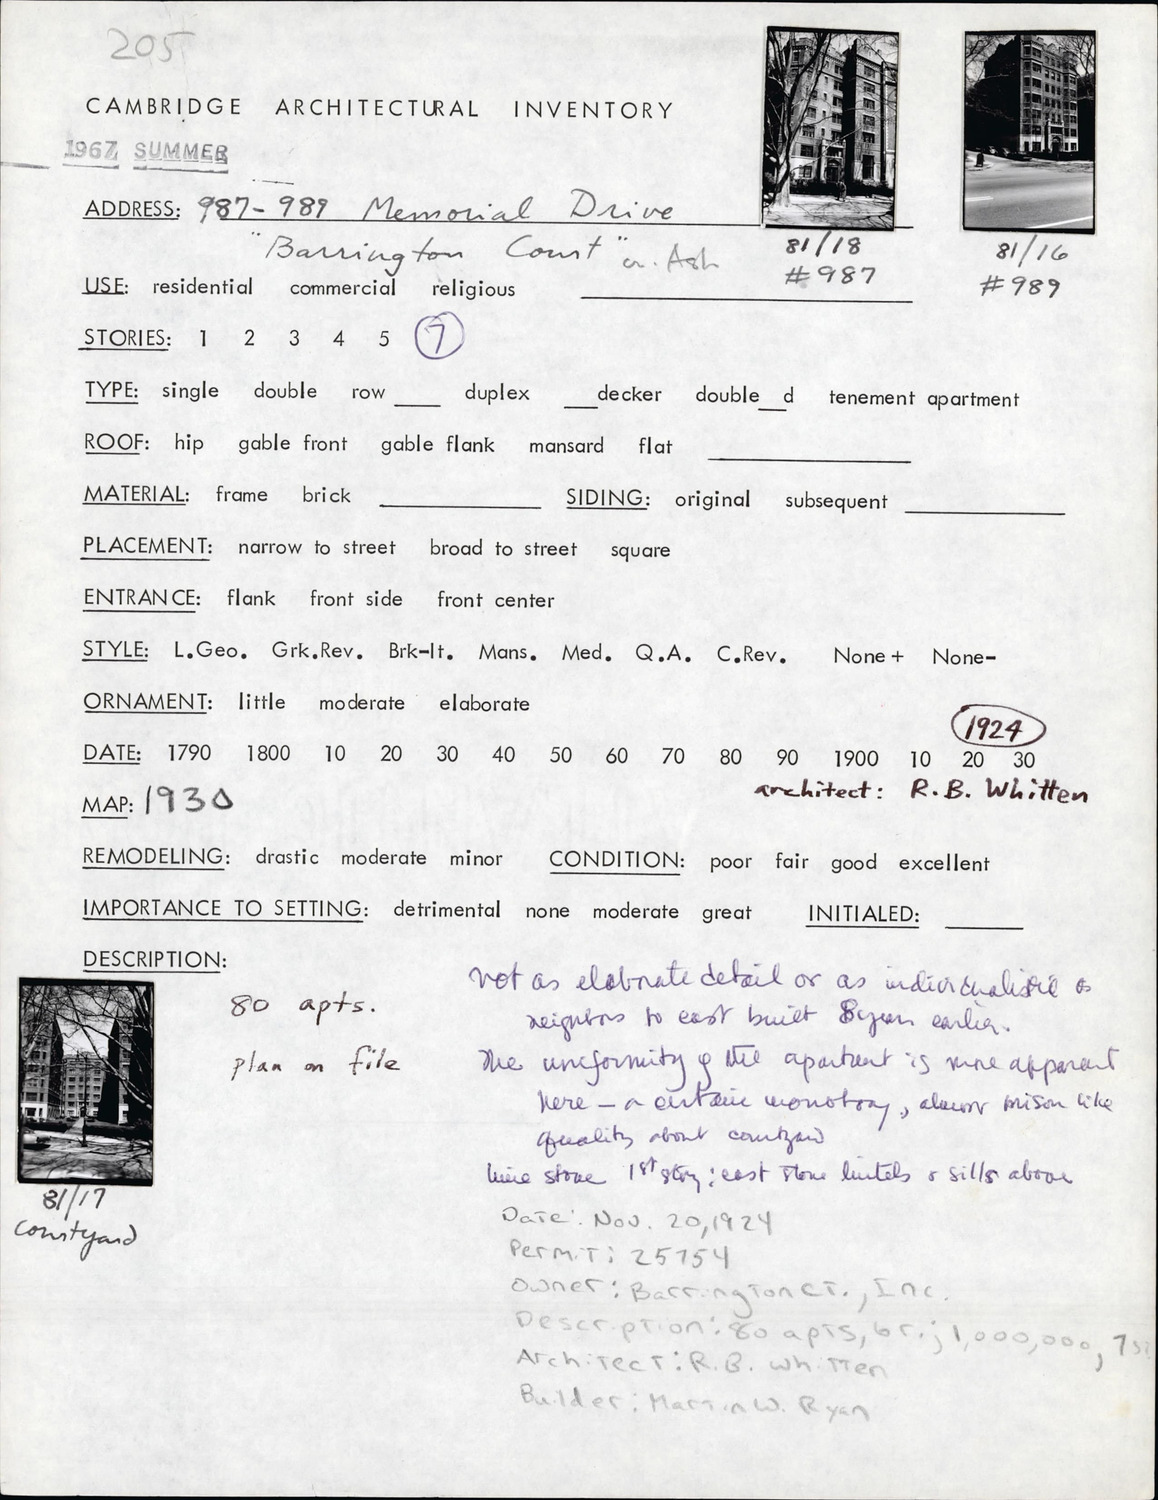 205
CAMBRIDGE ARCHITECTURAL INVENTORY
1967 SUMMER
ADDRESS: 987-989 Memorial Drive
"Barrington Court" cr. Ash
81/18
#987
81/16
#989
USE: residential commercial religious
STORIES: 1 2 3 4 5 7
TYPE: single double row ___ duplex ___decker double__d tenement apartment
ROOF: hip gable front gable flank mansard flat
MATERIAL: frame brick SIDING: original subsequent
PLACEMENT: narrow to street broad to street square
ENTRANCE: flank front side front center
STYLE: L.Geo. Grk.Rev. Brk-It. Mans. Med. Q.A. C.Rev. None+ None-
ORNAMENT: little moderate elaborate
1924
DATE: 1790 1800 10 20 30 40 50 60 70 80 90 1900 10 20 30
architect: R.B. Whitten
MAP: 1930
REMODELING: drastic moderate minor CONDITION: poor fair good excellent
IMPORTANCE TO SETTING: detrimental none moderate great INITIALED:
DESCRIPTION:
80 apts.
plan on file
not as elaborate detail or as individualistic as
neighbors to east built 8 years earlier.
The uniformity of the apartment is more apparent
here – a certain monotony, almost prison like
quality about courtyard
lime stone 1st story; cast stone lintels & sills above
81/17
courtyard
Date: Nov. 20, 1924
Permit: 25754
Owner: Barrington Ct., Inc.
Description: 80 apts, br.; 1,000,000, 7 st
Architect: R.B. Whitten
Builder: Martin W. Ryan